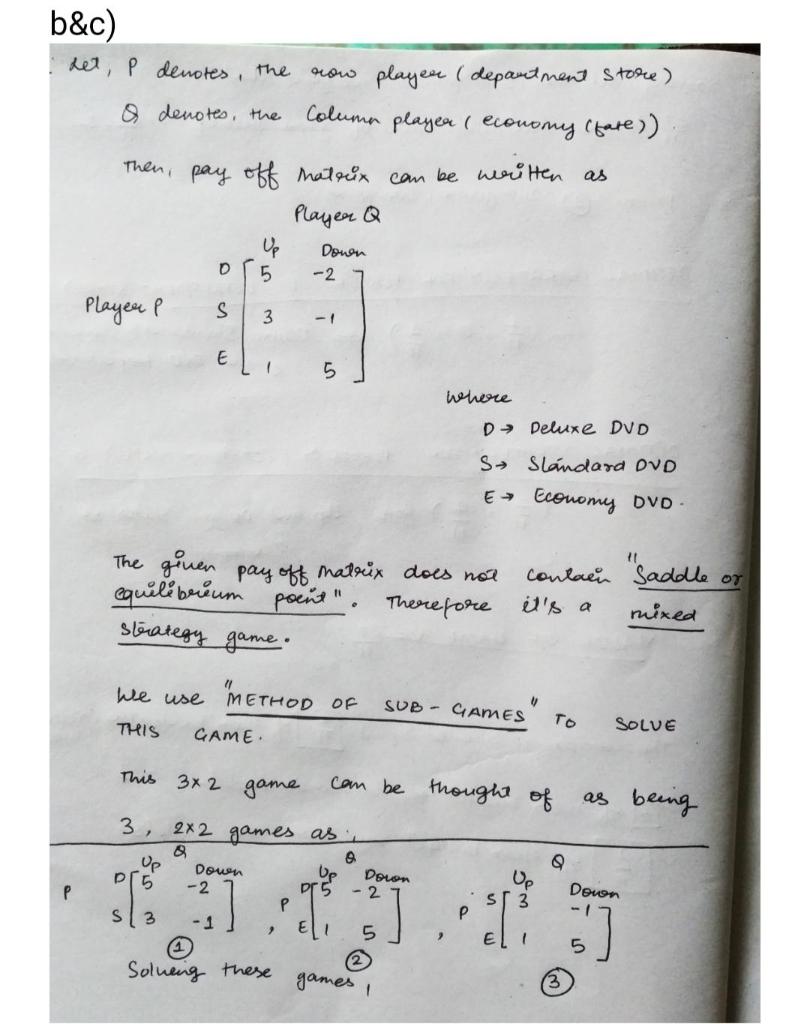 b&c)
Let, P denotes, the row player (department store)
Q denotes, the Column player (economy (fate))
Then, pay off Matrix can be written as
Player Q
Up Down
D 5 -2
Player P S 3 -1
E 1 5
where
D → Deluxe DVD
S → Standard DVD
E → Economy DVD.
The given pay off Matrix does not contain "Saddle or
equilibrium point". Therefore it's a mixed
strategy game.
We use "METHOD OF SUB-GAMES" TO SOLVE
THIS GAME.
This 3x2 game can be thought of as being
3, 2x2 games as,
Q Q Q
Up Down Up Down Up Down
P D 5 -2 P D 5 -2 P S 3 -1
S 3 -1 , E 1 5 , E 1 5
① ② ③
Solving these games,